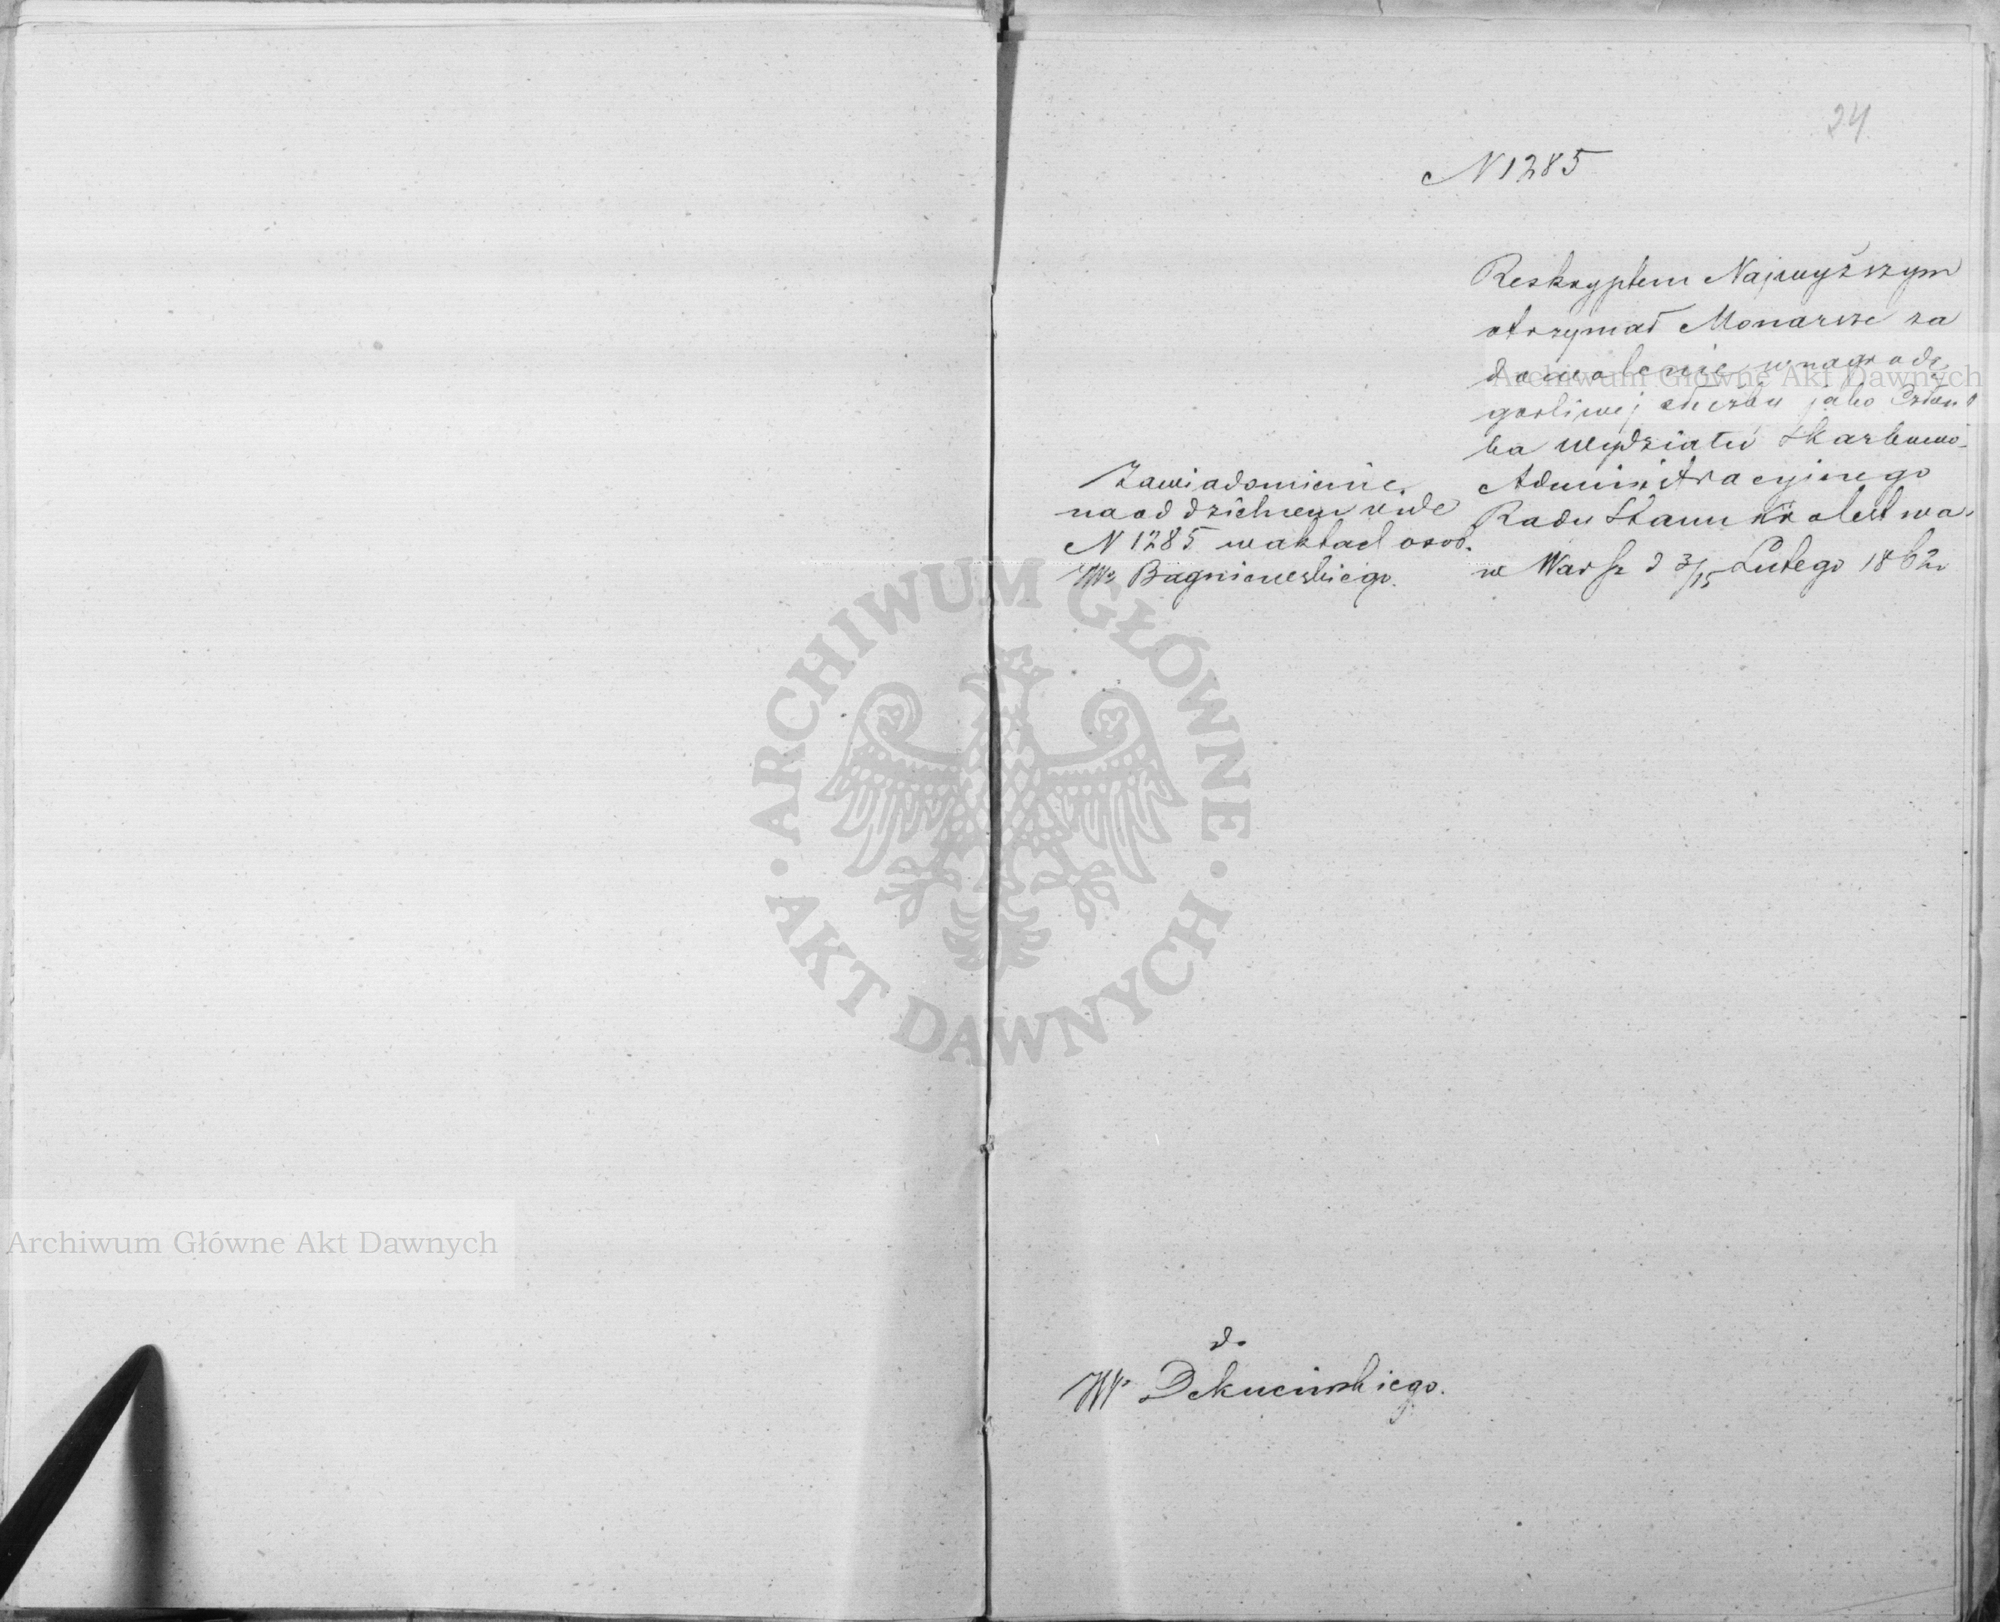 24
N 1285
Reskryptem Najwyższym
otrzymał Monarsze za
dowolenie w nagrodę
gorliwej służby jako Człon
ka Wydziału Skarbowo-
Administracyjnego
Rady Stanu Królestwa.
w Warsz d 3/15 Lutego 1862 r
Zawiadomienie
na oddzielnem vide
N 1285 w aktach osob.
W° Bagniewskiego.
do
W° Dekucińskiego.
ARCHIWUM GŁÓWNE
AKT DAWNYCH
Archiwum Główne Akt Dawnych
Archiwum Główne Akt Dawnych